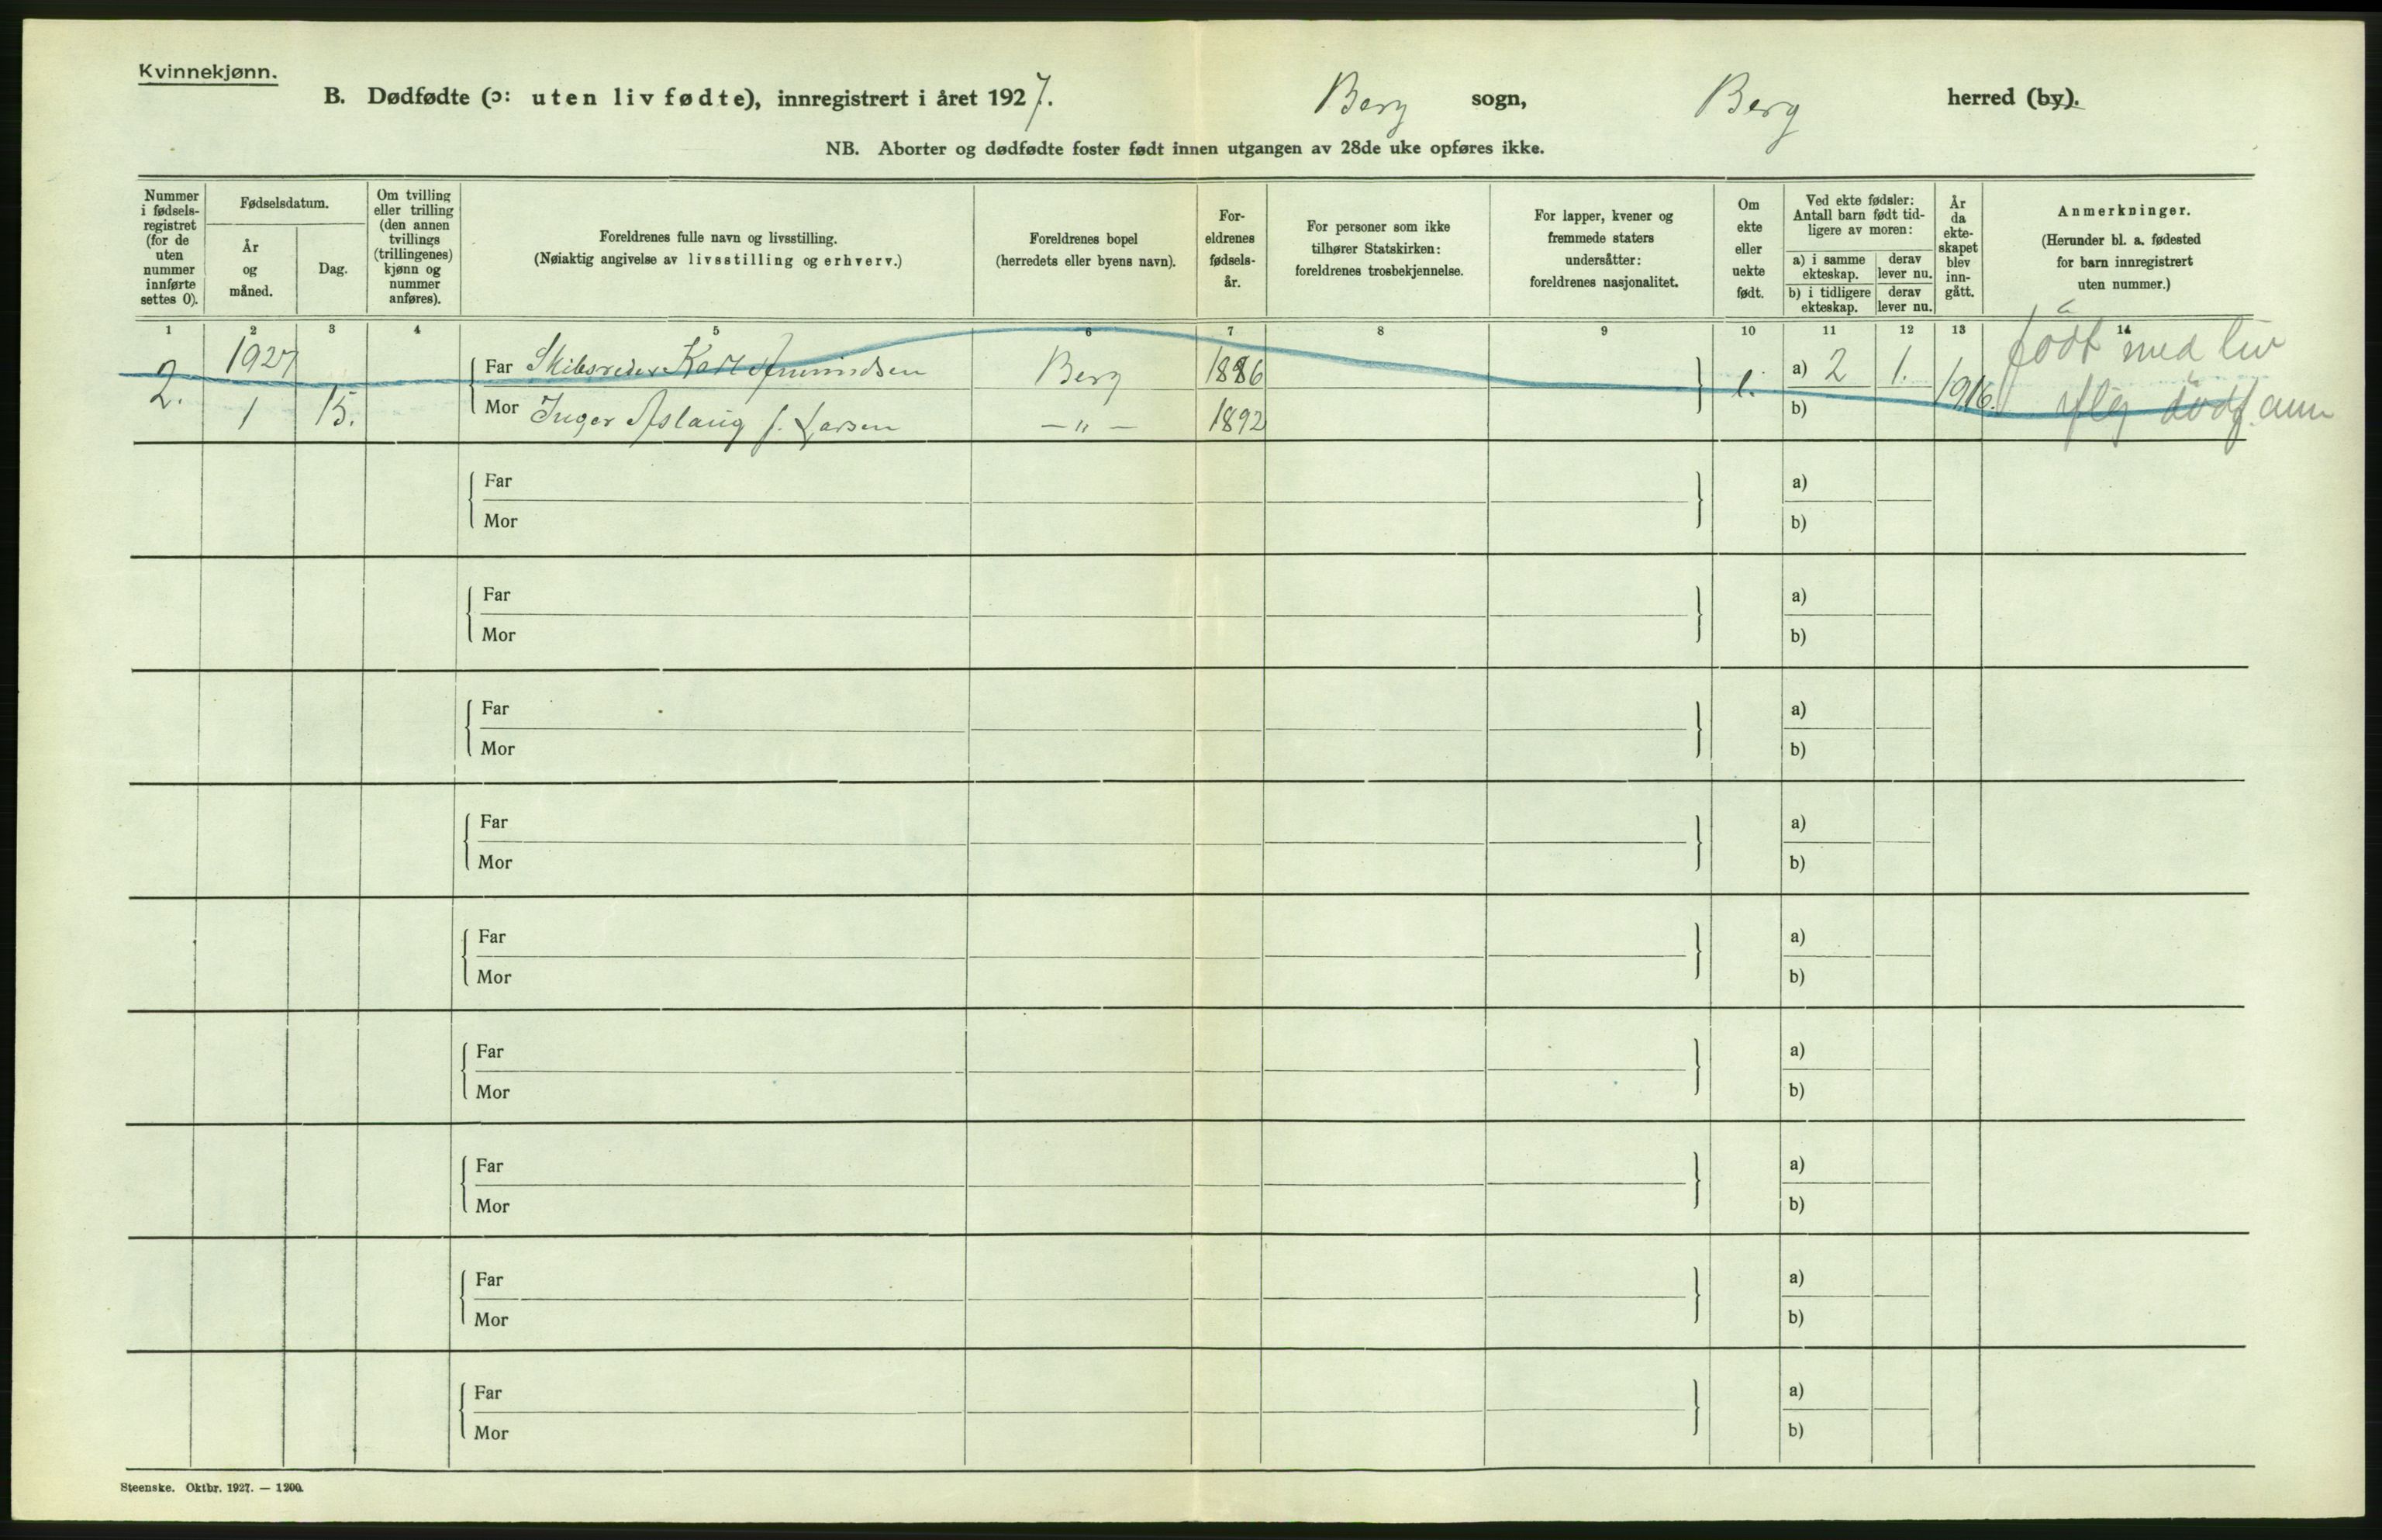 Kvinnekjønn.
B. Dødfødte (ɔ: uten liv fødte), innregistrert i året 1927. Berg sogn, Berg herred (by).
NB. Aborter og dødfødte foster født innen utgangen av 28de uke opføres ikke.
Nummer i fødsels- registret (for de uten nummer innførte settes 0).
Fødselsdatum.
År og måned.
Dag.
Om tvilling eller trilling (den annen tvillings (trillingenes) kjønn og nummer anføres).
Foreldrenes fulle navn og livsstilling.
(Nøiaktig angivelse av livsstilling og erhverv.)
Foreldrenes bopel
(herredets eller byens navn).
For- eldrenes fødsels- år.
For personer som ikke tilhører Statskirken: foreldrenes trosbekjennelse.
For lapper, kvener og fremmede staters undersåtter: foreldrenes nasjonalitet.
Om ekte eller uekte født.
Ved ekte fødsler: Antall barn født tid- ligere av moren:
a) i samme ekteskap.
derav lever nu.
b) i tidligere ekteskap.
derav lever nu.
År da ekte- skapet blev inn- gått.
Anmerkninger.
(Herunder bl. a. fødested for barn innregistrert uten nummer.)
1 2 3 4 5 6 7 8 9 10 11 12 13 14
2. 1927 Far Skibsreder Karl Amundsen Berg 1886 e. a) 2 1. 1916. født med liv
1 15. Mor Inger Aslaug f. Larsen — " — 1892 b)
Far a)
Mor b)
Far a)
Mor b)
Far a)
Mor b)
Far a)
Mor b)
Far a)
Mor b)
Far a)
Mor b)
Far a)
Mor b)
Far a)
Mor b)
Far a)
Mor b)
Steenske. Oktbr. 1927. — 1200.